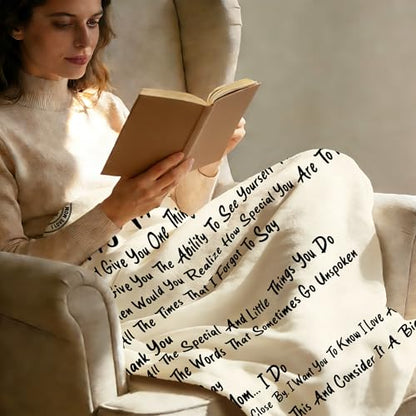 d Give You One Thing
Give You The Ability To See Yourself
hen Would You Realize How Special You Are To
All The Times That I Forgot To Say
hank You
All The Special And Little Things You Do
The Words That Sometimes Go Unspoken
ay
Mom... I Do
Close By. I Want You To Know I Love
This And Consider It A Bi